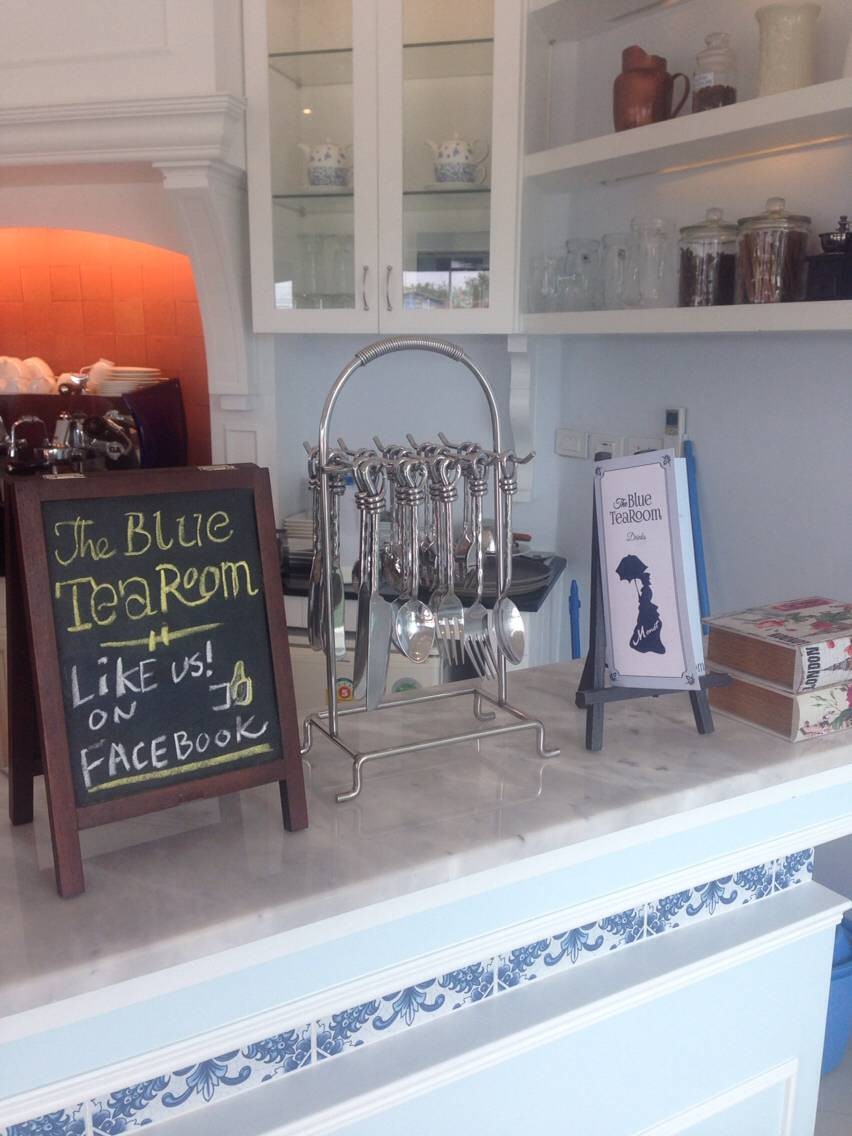 The Blue
TeaRoom
LiKE US!
ON
FACEBOOK
The Blue
TeaRoom
Drinks
Monét
LONDON
5